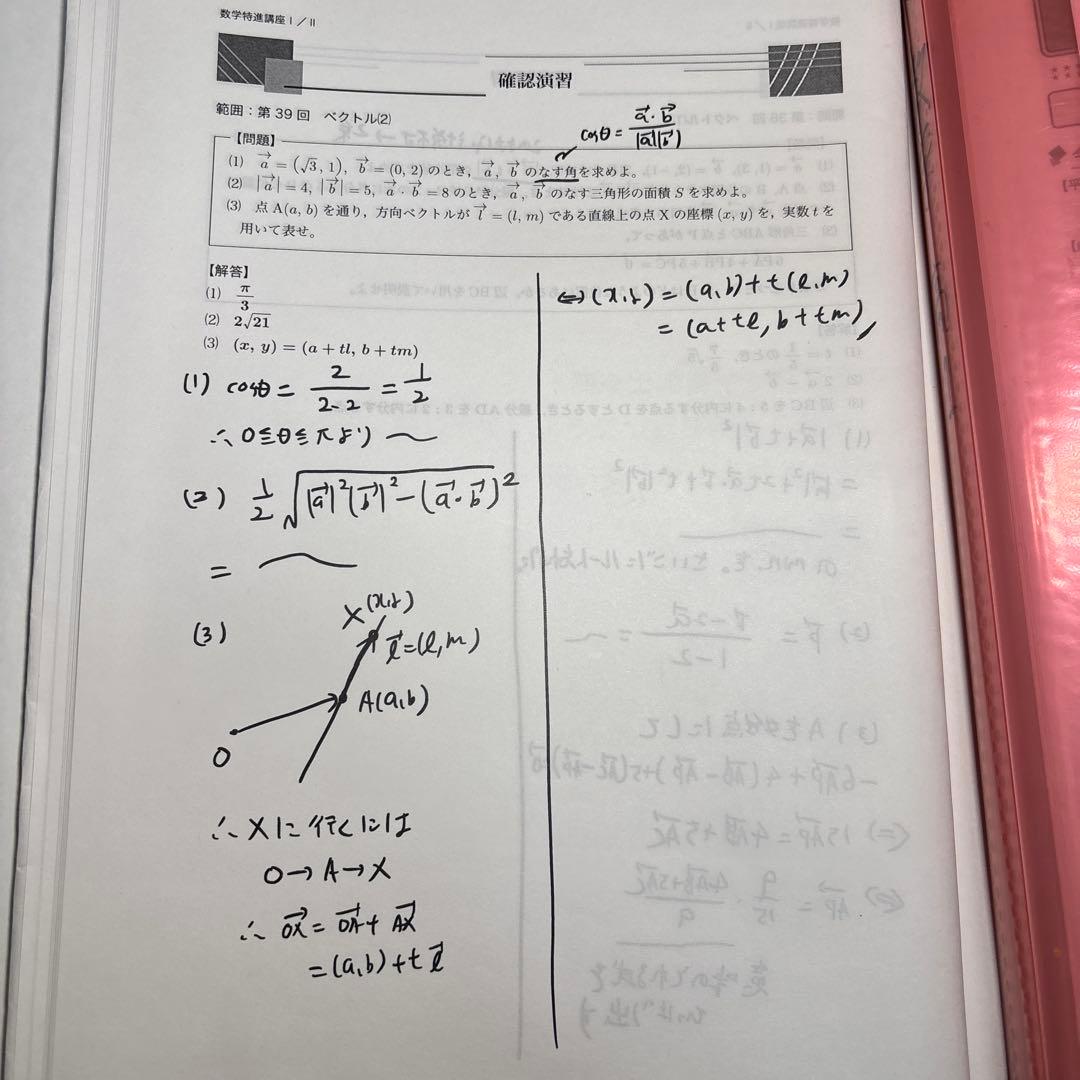 数学特進講座 I／II
確認演習
範囲：第 39 回　ベクトル(2)
cosθ = \frac{\vec{a}・\vec{b}}{|\vec{a}||\vec{b}|}
【問題】
(1) \vec{a} = (√3, 1), \vec{b} = (0, 2) のとき，\vec{a}, \vec{b} のなす角を求めよ。
(2) |\vec{a}| = 4, |\vec{b}| = 5, \vec{a}・\vec{b} = 8 のとき，\vec{a}, \vec{b} のなす三角形の面積 S を求めよ。
(3) 点 A(a, b) を通り，方向ベクトルが \vec{l} = (l, m) である直線上の点 X の座標 (x, y) を，実数 t を
用いて表せ。
【解答】
(1) \frac{π}{3}
(2) 2√21
(3) (x, y) = (a + tl, b + tm)
(1) cosθ = \frac{2}{2・2} = \frac{1}{2}
∴ 0≦θ≦π より 〜
(2) \frac{1}{2}\sqrt{|\vec{a}|^2|\vec{b}|^2-(\vec{a}・\vec{b})^2}
= 〜
(3)
X(x,y)
\vec{l}=(l,m)
A(a,b)
O
∴ Xに行くには
O→A→X
∴ \vec{OX} = \vec{OA} + \vec{AX}
= (a,b)+t\vec{l}
⇔ (x,y) = (a,b)+t(l,m)
= (a+tl, b+tm)